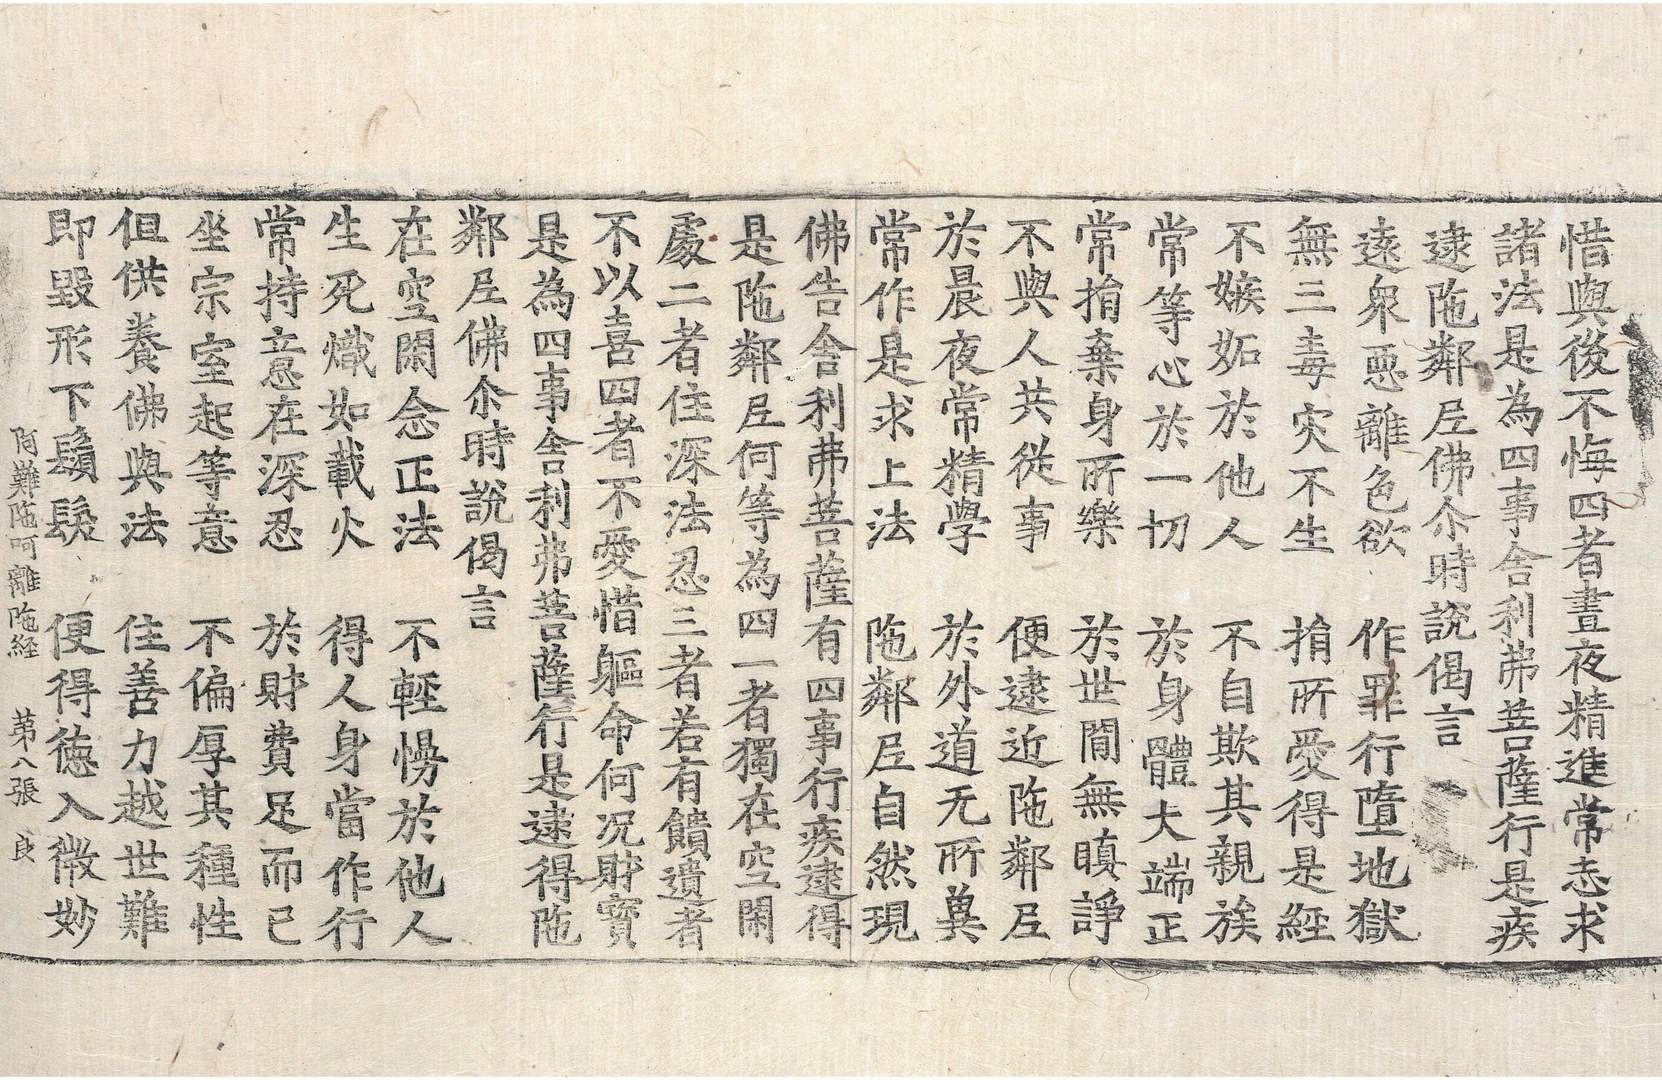 惜與後不悔四者晝夜精進常志求
諸法是為四事舍利弗菩薩行是疾
逮陁鄰尼佛尒時說偈言
遠衆惡離色欲　作罪行墮地獄
無三毒灾不生　捎所愛得是經
不嫉妬於他人　不自欺其親族
常等心於一切　於身體大端正
常捎棄身所樂　於世閒無瞋諍
不與人共從事　便逮近陁鄰尼
於晨夜常精學　於外道无所兾
常作是求上法　陁鄰尼自然現
佛告舍利弗菩薩有四事行疾逮得
是陁鄰尼何等為四一者獨在空閑
處二者住深法忍三者若有饋遺者
不以喜四者不愛惜軀命何況財寶
是為四事舍利弗菩薩行是逮得陁
鄰尼佛尒時說偈言
在空閑念正法　不輕慢於他人
生死熾如載火　得人身當作行
常持意在深忍　於財費足而已
坐宗室起等意　不偏厚其種性
但供養佛與法　住善力越世難
即毀形下鬚髮　便得德入微妙
阿難陁呵離陁経　第八張　良